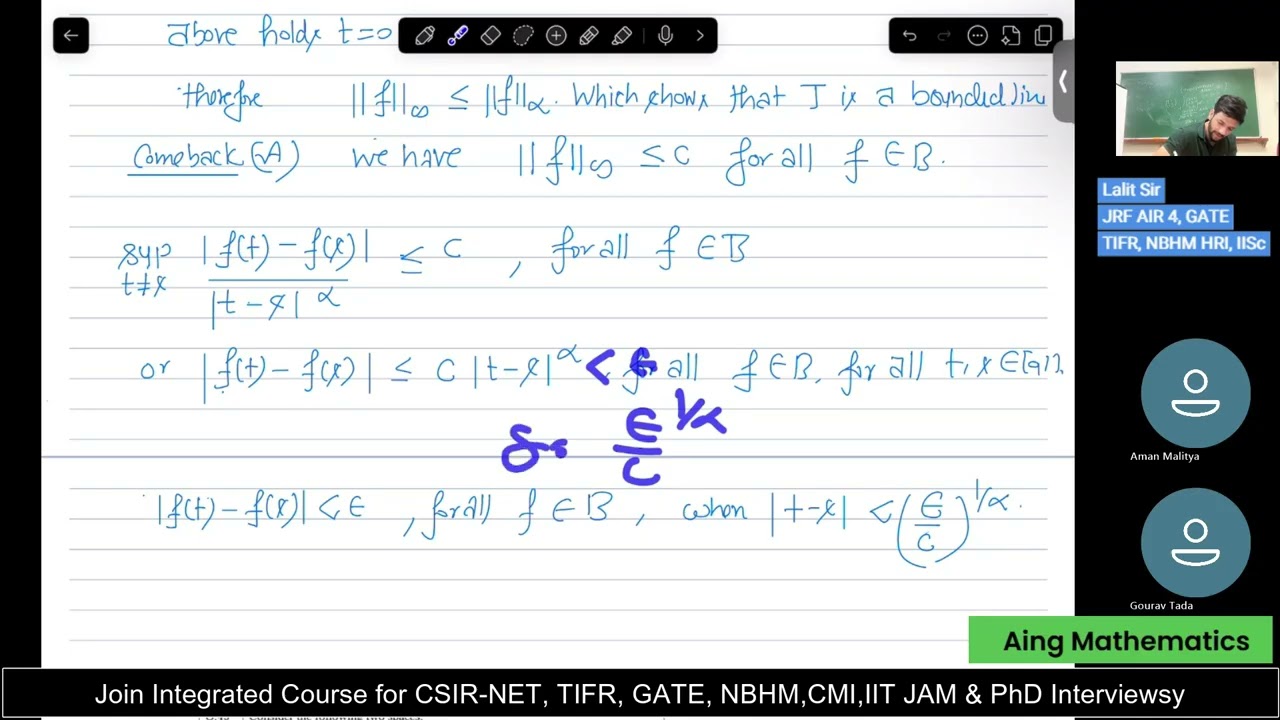 above holds t=0
therefore ||f||∞ ≤ ||f||α. Which shows that T is a bounded lin
Comeback (A) we have ||f||∞ ≤ C for all f ∈ B.
sup |f(t) - f(x)| / |t - x|^α ≤ C , for all f ∈ B
t≠x
or |f(t) - f(x)| ≤ C |t-x|^α < for all f ∈ B, for all t, x ∈ [0,1].
δ = ε/C ^1/α
|f(t) - f(x)| < ε , for all f ∈ B , when |t-x| < (ε/C)^1/α.
Lalit Sir
JRF AIR 4, GATE
TIFR, NBHM HRI, IISc
Aman Malitya
Gourav Tada
Aing Mathematics
Join Integrated Course for CSIR-NET, TIFR, GATE, NBHM,CMI,IIT JAM & PhD Interviewsy